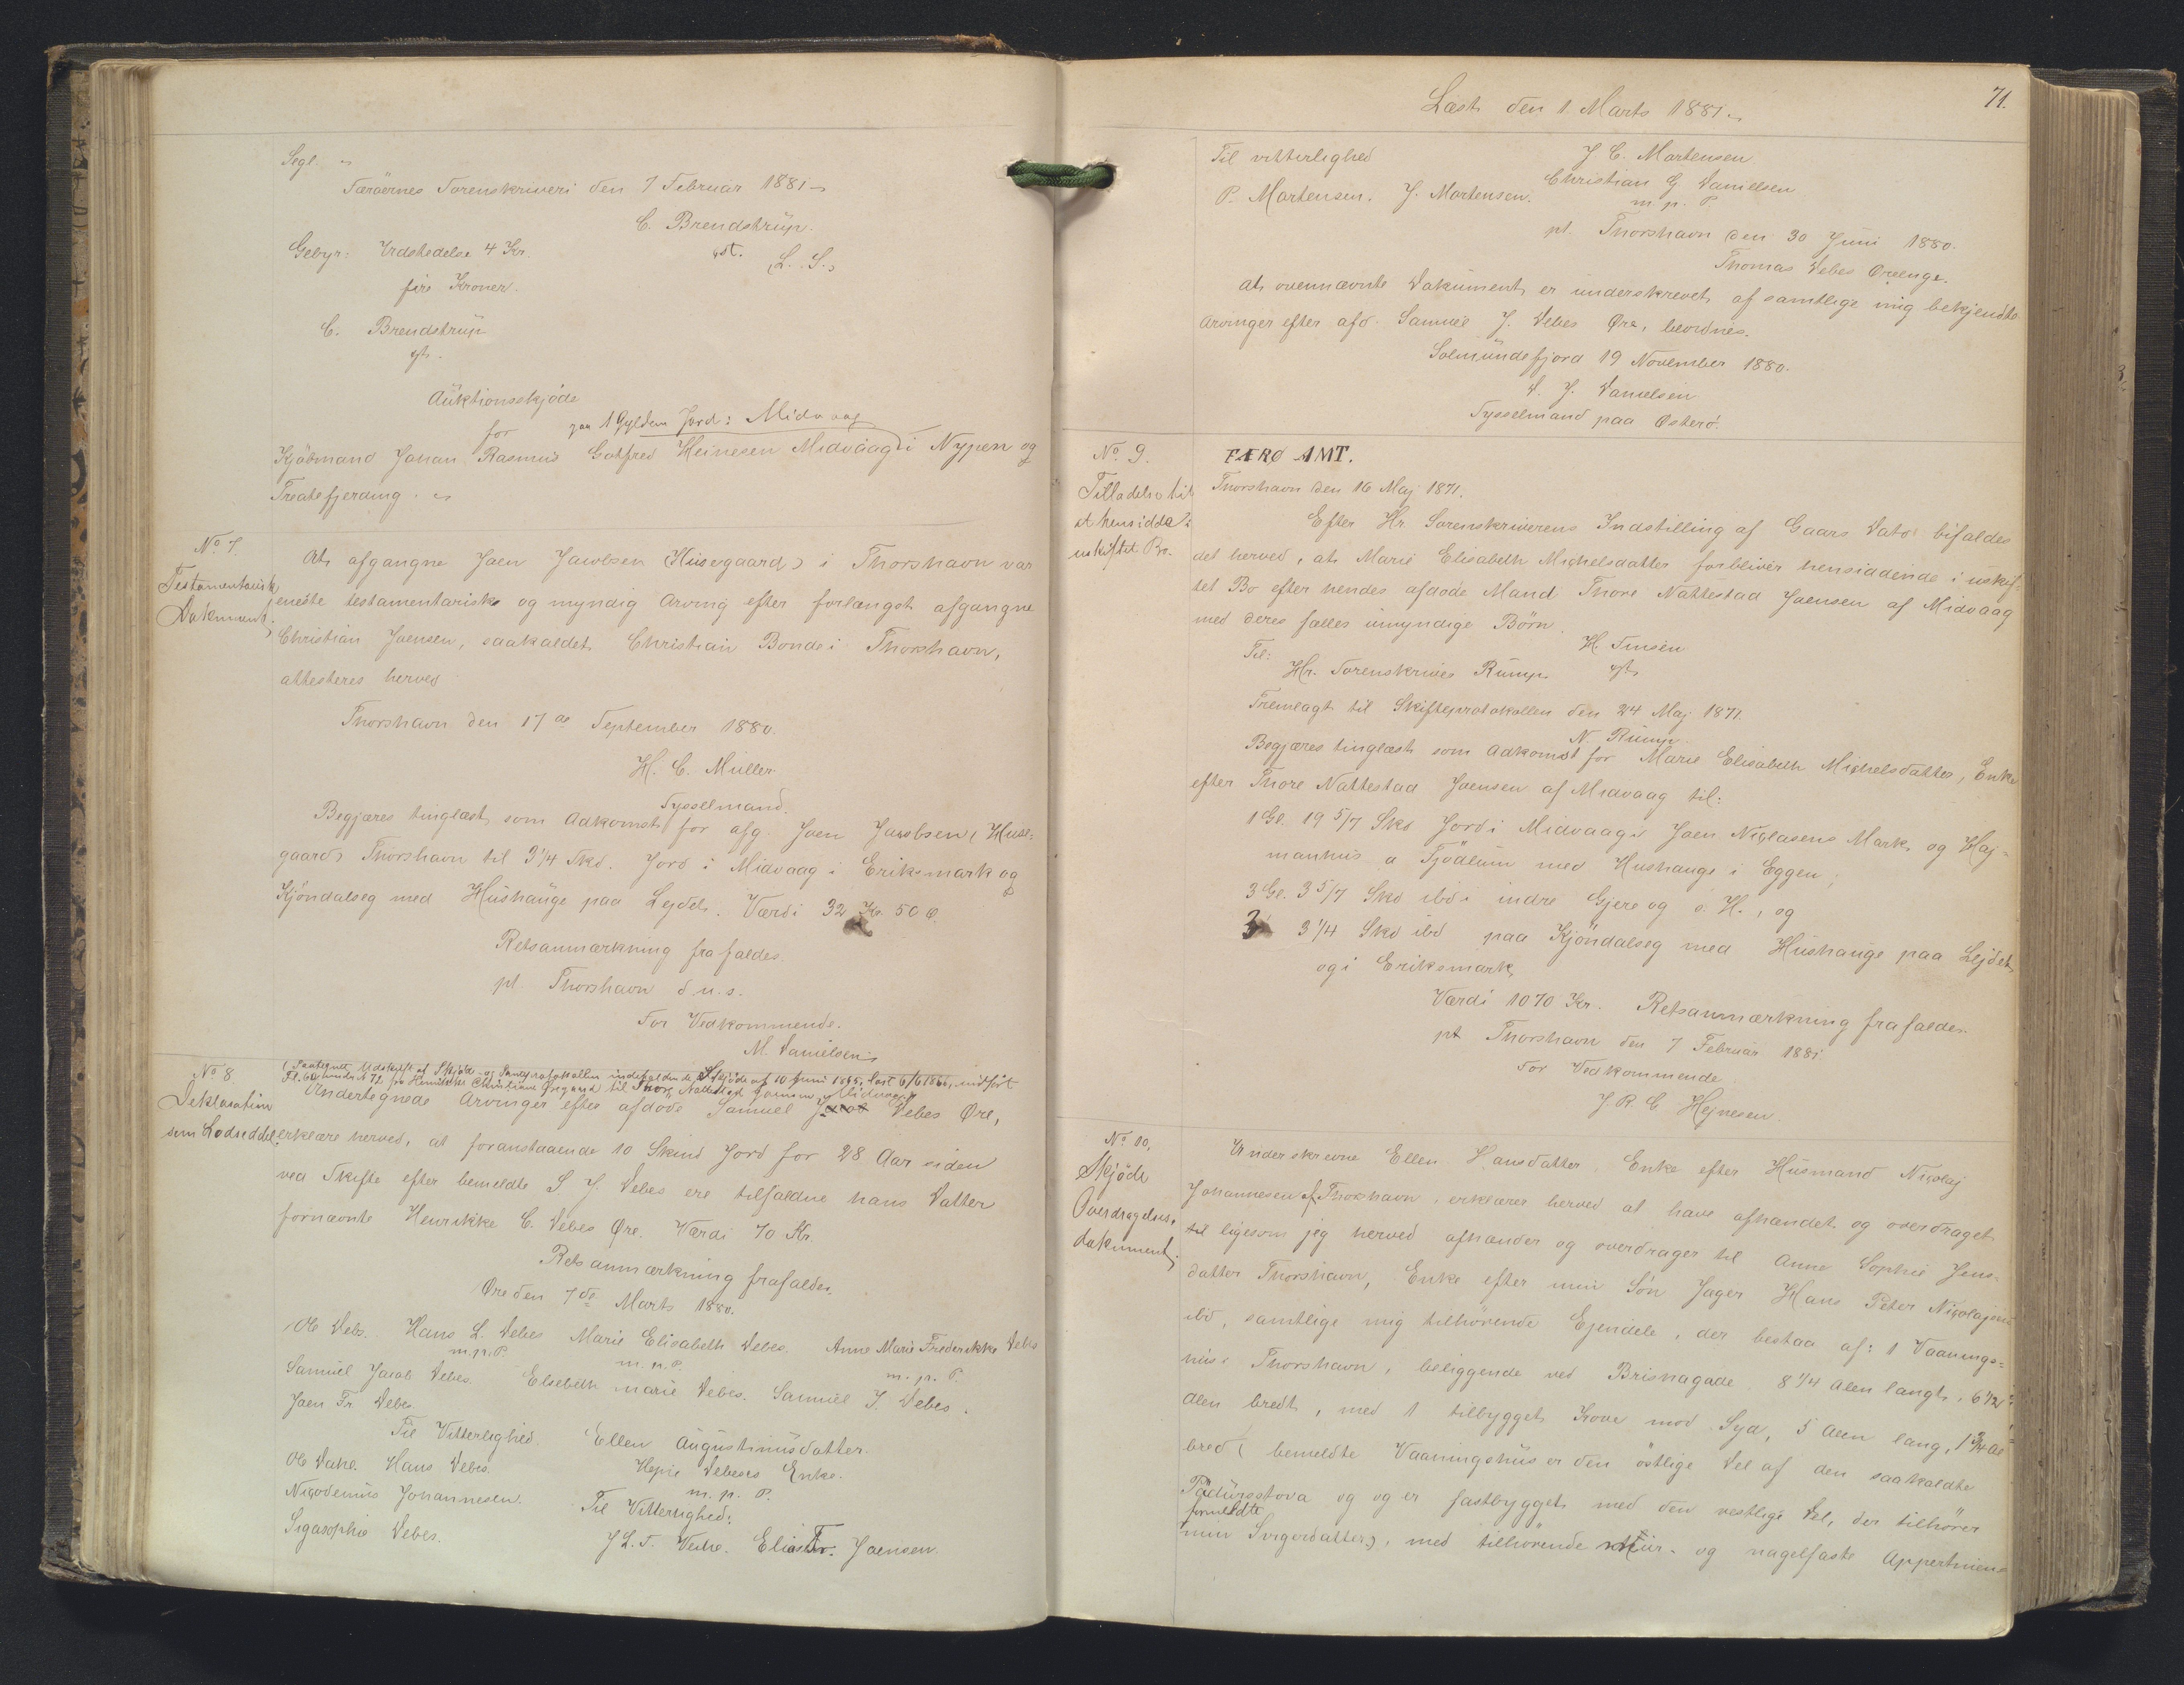 Segl
Færøernes Sorenskriveri den 7 Februar 1881
C. Brendstrüp.
cst. (L. S.)
Gebyr: Udstedelse 4 Kr.
fire Kroner.
C. Brendstrüp
cst.
Auktionsskjöde
for paa 1 Gylden Jord i Midvaag
Kjöbmand Johan Rasmus Gotfred Heinesen Midvaag i Nypen og
Treatefjerding.
No 7.
Testamentarisk
Dokument.
At afgangne Joen Jacobsen (Husegaard) i Thorshavn var
eneste testamentarisk og myndig Arving efter forlængst afgangne
Christian Joensen, saakaldet Christian Bonde i Thorshavn,
attesteres herved
Thorshavn den 17de September 1880.
H. C. Müller
Sysselmand.
Begjæres tinglæst som Adkomst for afg. Joen Jacobsen (Huse-
gaard) Thorshavn til 3 1/4 Skd. Jord i Midvaag i Eriksmark og
Kjöndalseg med Hushauge paa Lejdet. Værdi 32 Kr. 50 Ø.
Retsanmærkning frafaldes.
pt. Thorshavn d. u. s.
For Vedkommende.
M. Danielsen
No 8.
Deklaration
som Lodseddel.
(Paategnet Udskrift af Skjöde- og Panteprotokollen indeholdende Skjöde af 10 Juni 1865, læst 6/6 1866, indfört
Fl. 60 under No 72 fra Henrikke Christiane Øregaard til Thore Nattestad Joensen Midvaag)
Undertegnede Arvinger efter afdöde Samuel J. Debes Øre,
erklære herved, at foranstaaende 10 Skind Jord for 28 Aar siden
ved Skifte efter bemeldte S J. Debes ere tilfaldne hans Datter
fornævnte Henrikke C. Debes Øre. Værdi 70 Kr.
Retsanmærkning frafaldes.
Øre den 7de Marts 1880.
Ole Debes. Hans L. Debes Marie Elisabeth Debes. Anne Marie Frederikke Debes
m. p. P. m. p. P. m. p. P.
Samuel Jacob Debes. Elsebeth marie Debes. Samuel J. Debes.
Joen Fr. Debes.
Til Vitterlighed. Ellen Augustinusdatter
Ole Dahl. Hans Debes. Debeses Enke.
m. p. P.
Nicodemus Johannesen. Til Vitterlighed:
Sigasophie Debes. J. L. F. Weihe. Elias Fr. Joensen.
Læst den 1. Marts 1881.
71.
Til vitterlighed J C. Mortensen
P. Mortensen. J. Mortensen. Christian G Danielsen
m. p. P.
pt. Thorshavn den 30 Juni 1880.
Thomas Debes Øreenge.
At ovennævnte Dokument er underskrevet af samtlige mig bekjendte
Arvinger efter afd. Samuel J. Debes Øre, bevidnes.
Solmundefjord 19 November 1880.
D. J. Danielsen
Sysselmand paa Østerö.
No 9.
Tilladelse til
at hensidde i
uskiftet Bo.
FÆRØ AMT.
Thorshavn den 16 Maj 1871.
Efter Hr. Sorenskriverens Indstilling af Gaars Dato bifaldes
det herved, at Marie Elisabeth Michelsdatter forbliver hensiddende i uskif-
tet Bo efter hendes afdöde Mand Thore Nattestad Joensen af Midvaag
med deres fælles umyndige Börn.
H. Finsen
Til:
Hr. Sorenskriver Rümp cst.
Fremlagt til Skifteprotokollen den 24 Maj 1871.
N. Rümp
Begjæres tinglæst som Adkomst for Marie Elisabeth Michelsdatter, Enke
efter Thore Nattestad Joensen af Midvaag til:
1 Gl. 19 5/7 Skd Jord i Midvaag i Joen Niclasens Mark og Haj-
manhus a Tjödeum med Hushauge i Eggen;
3 Gl. 3 5/7 Skd ibd i indre Gjere og o. H., og
3 1/4 Skd ibd paa Kjöndalseg med Hushauge paa Lejdet
og i Eriksmark,
Værdi 1070 Kr. Retsanmærkning frafaldes.
pt Thorshavn den 7 Februar 1881
For Vedkommende
J. R. G Hejnesen.
No 10.
Skjöde
Overdragelses-
dokument.
Underskrevne Ellen Hansdatter, Enke efter Husmand Nicolaj
Johannesen af Thorshavn, erklærer herved at have afhændet og overdraget
til ligesom jeg herved afhænder og overdrager til Anne Sophie Jens-
datter Thorshavn, Enke efter min Sön Jager Hans Peter Nicolajsen
ibd, samtlige mig tilhörende Ejendele, der bestaa af: 1 Vaanings-
hus i Thorshavn, beliggende ved Brisnagade 8 1/4 Alen langt, 6 1/2
Alen bredt, med 1 tilbygget Kove mod Syd, 5 Alen lang, 1 3/4 Al
bred (bemeldte Vaaningshus er den östlige Del af den saakaldte
Pædursstova og og er fastbygget med den vestlige Del, der tilhörer
formeldte
min Svigerdatter), med tilhörende Mür- og nagelfaste Appertinen